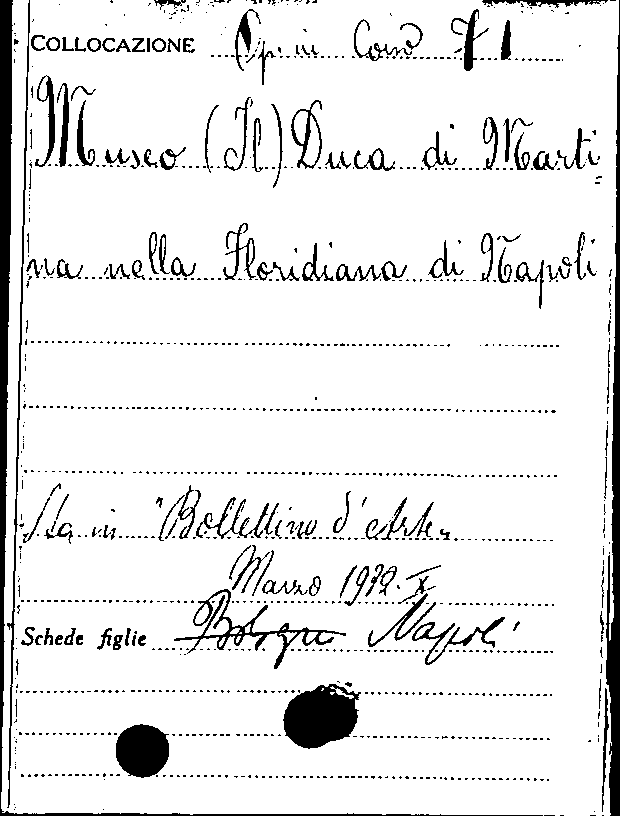 COLLOCAZIONE Op. in Corso 71
Museo (Il) Duca di Marti=
na nella Floridiana di Napoli
Sta in "Bollettino d'Arte"
Marzo 1932. X
Schede figlie Bologna Napoli